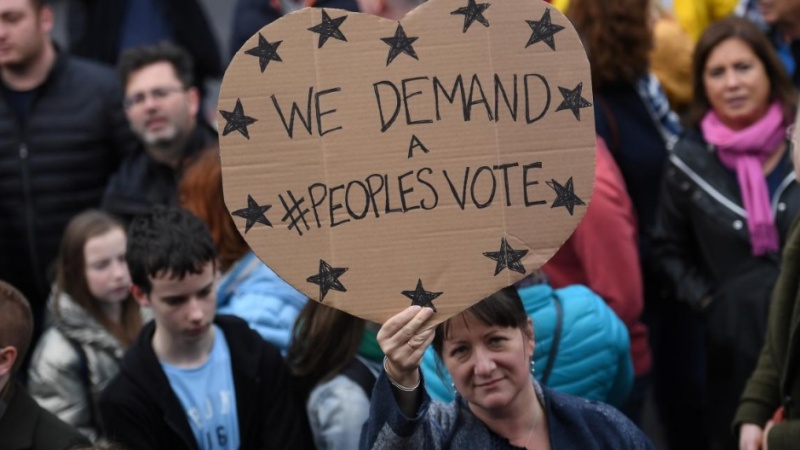 WE DEMAND
A
#PEOPLESVOTE